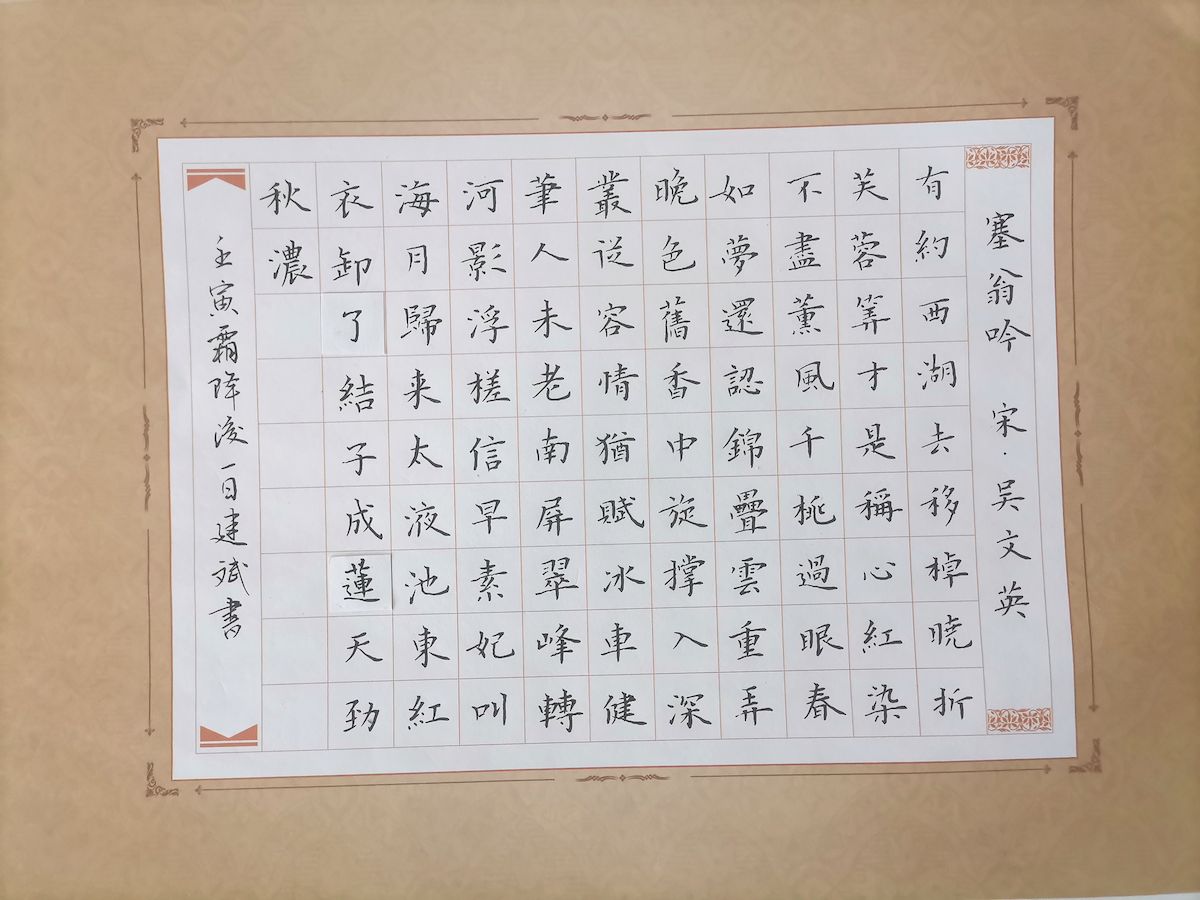 塞翁吟 宋·吳文英
有約西湖去移棹曉折
芙蓉筭才是稱心紅染
不盡薰風千桃過眼春
如夢還認錦疊雲重弄
晚色舊香中旋撑入深
叢從容情猶賦冰車健
筆人未老南屏翠峰轉
河影浮槎信早素妃叫
海月歸来太液池東紅
衣卸了結子成蓮天勁
秋濃
壬寅霜降後一日建斌書